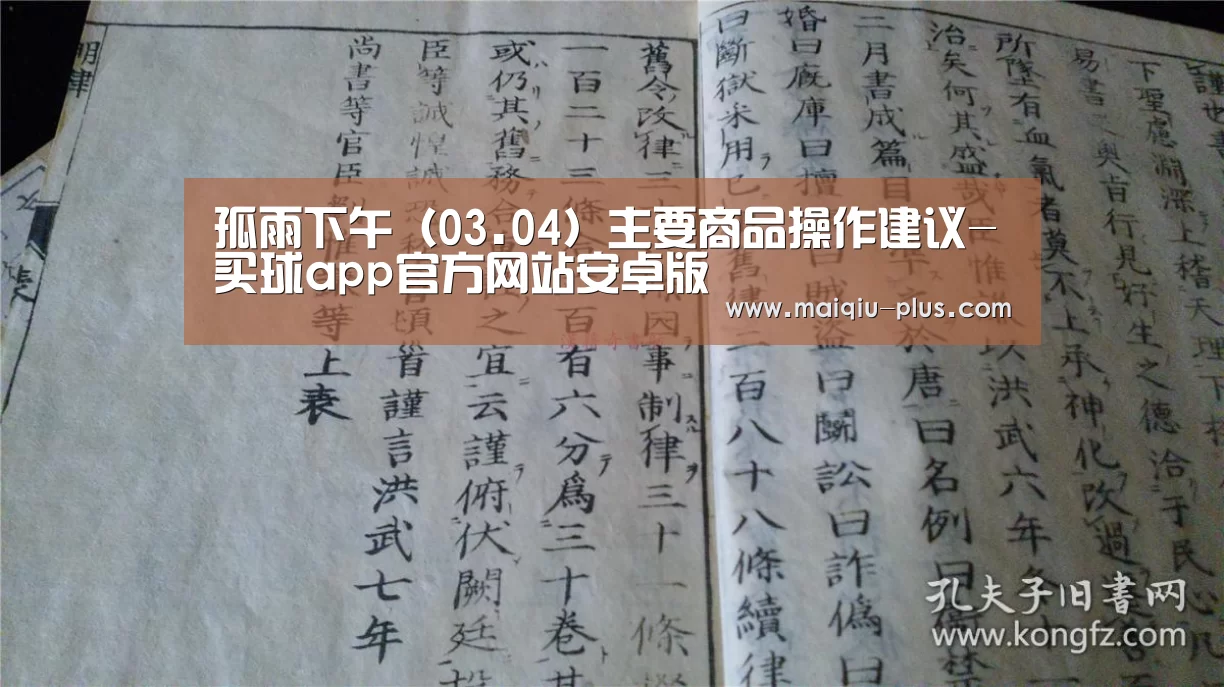 謹世
下聖慮淵深上稽天理下
易書之奧肯行見好生之德洽于民心凡
所墜有血氣者莫不上承神化改過
治矣何其盛哉臣惟
以洪武六年
二月書成篇目
於唐曰名例曰衛禁
婚曰廐庫曰擅
曰賊盜曰鬭訟曰詐偽曰
曰斷獄采用已
舊律二百八十八條續律
舊令改律三十
因事制律三十一條
一百二十三條
百有六分爲三十卷其
或仍其舊務合
之宜云謹俯伏闕廷投
臣等誠惶誠恐
頓首謹言洪武七年
尚書等官臣劉惟
等上表
明律
表
孤雨下午（03.04）主要商品操作建议-
买球app官方网站安卓版
www.maiqiu-plus.com
孔夫子旧書网
www.kongfz.com